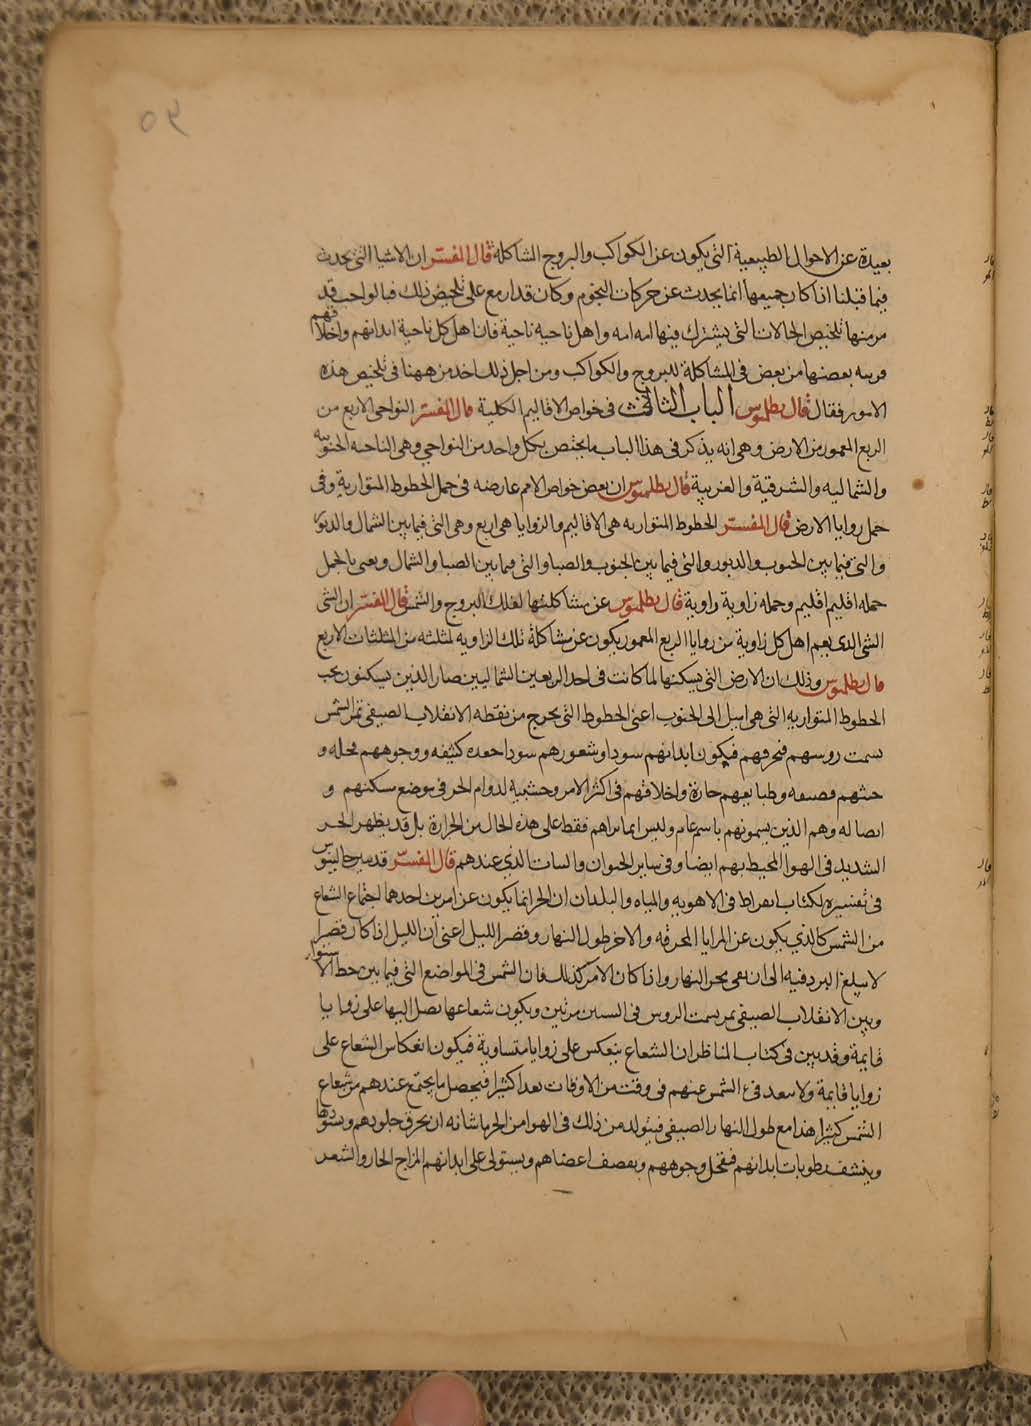 ٥٤
بعيدة عن الاحوال الطبيعية التي يكون عن الكواكب والبروج الشاكلة قال المفسر ان الاشيا التي يحدث
فيما قبلنا اذا كان جميعها انما يحدث عن حركات النجوم وكان قد ازمع على تلخيص ذلك فبالواجب قد
مر منها تلخيص الحالات التي يشترك فيها امه امه واهل ناحيه ناحية فان اهل كل ناحية ابدانهم واخلاقهم
قريبه بعضها من بعض في المشاكلة للبروج والكواكب ومن اجل ذلك اخذ من ههنا في تلخيص هذه
الامور فقال قال بطلميوس الباب الثالث في خواص الاقاليم الكلية قال المفسر النواحي الاربع من
الربع المعمور من الارض وهي انه يذكر في هذا الباب ما يختص بكل واحد من النواحي وهي الناحيه الجنوبيه
والشماليه والشرقية والغربية قال بطلميوس ان بعض خواص الامم عارضه في جمل الخطوط المتوازية وفي
جمل زوايا الارض قال المفسر الخطوط المتوازيه هي الاقاليم والزوايا هي اربع وهي التي فيما بين الشمال والدبور
والتي فيما بين الجنوب والدبور والتي فيما بين الجنوب والصبا والتي فيما بين الصبا والشمال ويعني بالجمل
جمله اقليم اقليم وجمله زاوية زاوية قال بطلميوس عن مشاكلتها لفلك البروج والشمس قال المفسر ان الشي
الشي الذي يعم اهل كل زاوية من زوايا الربع المعمور يكون عن مشاكلة تلك الزاويه لمثلثه من المثلثات الاربع
قال بطلميوس وذلك ان الارض التي يسكنها لما كانت في احد الربعين الشماليين صار الذين يسكنون تحت
الخطوط المتوازيه التي هي اميل الى الجنوب اعني الخطوط التي يخرج من نقطه الانقلاب الصيفي تمر الشمس
بسمت روسهم فتحرقهم فيكون ابدانهم سودا وشعورهم سودا جعده كثيفه ووجوههم قحله و
جثثهم قصيفه وطبايعهم حارة واخلاقهم في اكثر الامر وحشية لدوام الحر في موضع سكنهم و
اتصاله وهم الذين يسمونهم باسم عام وليس انما نراهم فقط على هذه الحال من الحرارة بل قد يظهر الحر
الشديد في الهوا المحيط بهم ايضا وفي ساير الحيوان والنبات الذي عندهم قال المفسر قد بين جالينوس
في تفسيره لكتاب ابقراط في الاهويه والمياه والبلدان ان الحر انما يكون عن امرين احدهما اجتماع الشعاع
من الشمس كالذي يكون عن المرايا المحرقه والاخر طول النهار وقصر الليل اعني ان الليل اذا كان قصيرا
لا يبلغ البرد فيه الى ان يفي بحر النهار واذا كان الامر كذلك فان الشمس في المواضع التي فيما بين خط الاستوا
وبين الانقلاب الصيفي تمر بسمت الروس في السنه مرتين ويكون شعاعها تصل اليها على زوايا
قايمة وقد بين في كتاب المناظر ان الشعاع ينعكس على زوايا متساوية فيكون انعكاس الشعاع على
زوايا قايمة ولا تبعد في الشمس عنهم في وقت من الاوقات بعدا كثيرا فيحصل ما يجتمع عندهم من شعاع
الشمس كثيرا هذا مع طول النهار الصيفي فيتولد من ذلك في الهوا من الحر ما شانه ان يحرق جلودهم ويسودها
وينشف رطوبات ابدانهم فتقحل وجوههم ويقصف اعضاهم ويستولي على ابدانهم المزاج الحار والشعر